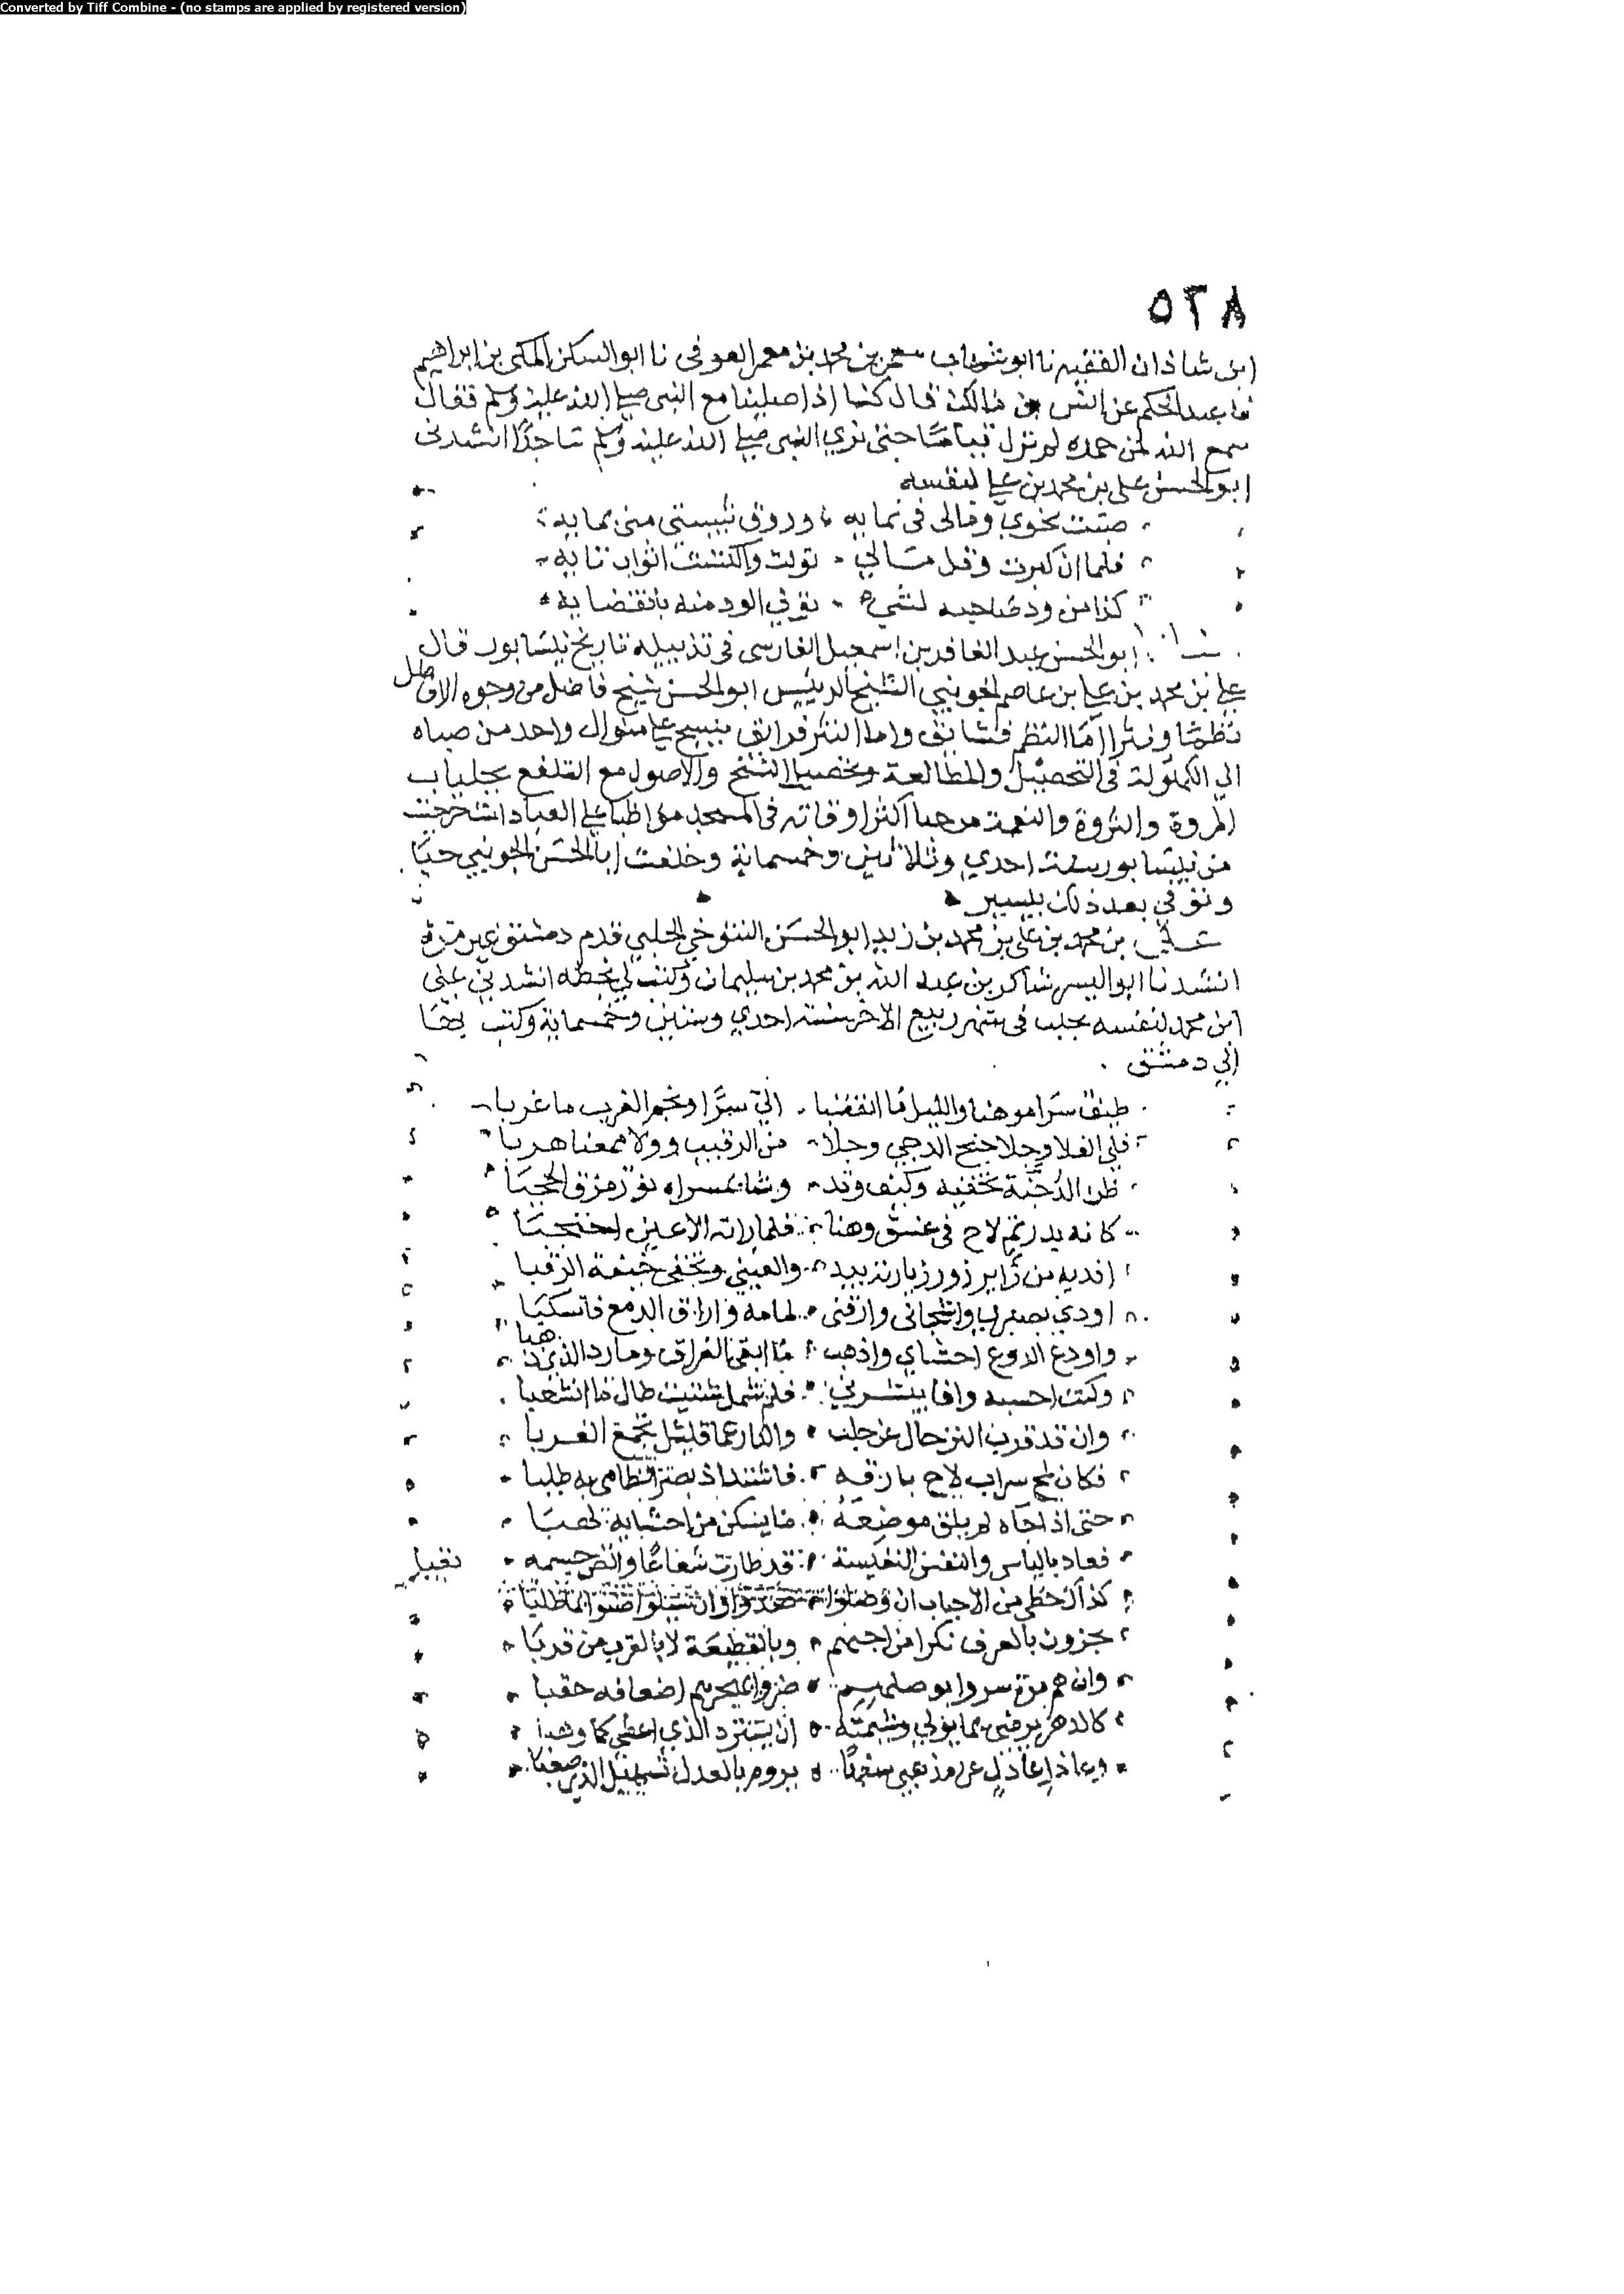 Converted by Tiff Combine - (no stamps are applied by registered version)
٥٣٨
ابن شاذان الفقيه نا ابو شهاب معمر بن محمد بن معمر العوفي نا ابو السكن المكي بن ابراهيم
نا عبد الحكم عن انس بن مالك قال كنا اذا صلينا مع النبي صلى الله عليه وسلم فقال
سمع الله لمن حمده لم نزل قياما حتى نرى النبي صلى الله عليه وسلم ساجدا انشدني
ابو الحسن على بن محمد بن علي لنفسه
صبت نحوي ومالى فى نمايه ورونق شيبتى منى بمايه
فلما ان كبرت وقل مالي تولت واكتست اثواب نايه
كذا من ود صاحبه لشيء يولي الود منه بانقضايه
ابو الحسن عبد الغافر بن اسمعيل الفارسى فى تذييله تاريخ نيسابور قال
علي بن محمد بن علي بن عاصم الجويني الشيخ الرييس ابو الحسن شيخ فاضل من وجوه الافاضل
نظما ونثرا اما النظم فشايق واما النثر فرايق ينسج علي منوال واحد من صباه
الي الكهولة فى التحصيل والمطالعة وتحصيل النسخ والاصول مع التلفع بجلباب
المروة والثروة والنعمة مرحبا اكثر اوقاته فى المسجد مواظبا علي العبادات خرجت
من نيسابور سنة احدي وثلاثين وخمسماية وخلفت ابا الحسن الجويني حيا
وتوفي بعد ذلك بيسير
علي بن محمد بن على بن محمد بن زيد ابو الحسن التنوخي الحلبي قدم دمشق غير مرة
انشدنا ابو اليسر شاكر بن عبد الله بن محمد بن سليمان وكتب لي بخطه انشدني على
ابن محمد لنفسه بحلب فى شهر ربيع الاخر سنة احدي وستين وخمسماية وكتب بها
الي دمشق
طيف سرا موهنا والليل ما انقضبا الي سرا ونجم الغرب ما غربا
فلى الفلا وجلا جنح الدجي وجلا من الرقيب وولا ممعنا هربا
ظن الدجنة تخفيه وكيف وقد وشا بمسراه نور مزق الحجبا
كانه بدر تم لاح فى غسق وهنا فلما راته الاعين احتجبا
افديه من زاير زور زيارته يبدو والعيني وتخفى خيفة الرقبا
اودي بصبري واشجانى وارقنى لمامه واراق الدمع فانسكبا
واودع الروع احشاي واذهب ما ابقى الفراق وما رد الذي ذهبا
وكنت احسبه وافا يبشرني فلم شمل شتيت طال ما انشعبا
وان قد قرب الترحال عن حلب والدار عما قليل تجمع الغربا
فكان لمح سراب لاح بارقه فاشتد اذ بصر الظامى به طلبا
حتى اذا جاه لم يلق موضعه ما يسكن من احشايه لهبا
فعاد بالياس والنفس النفيسة قد طارت شعاعا وانضى جسمه
كذاك حظى من الاحباب ان وصلوا صدوا وان سيلوا ضنوا بما طلبا
يجزون بالعرف نكرا من احبهم وبالقطيعة لا بالقرب من قربا
وان هم مرة سروا بوصلهم ضروا بهجرهم اضعافه حقبا
كالدهر يرضى بما يولي وشيمته ان يسترد الذي اعطى كما وهبا
وعاذل عن مذهبي سفها يروم بالعدل تسهيل الذي صعبا